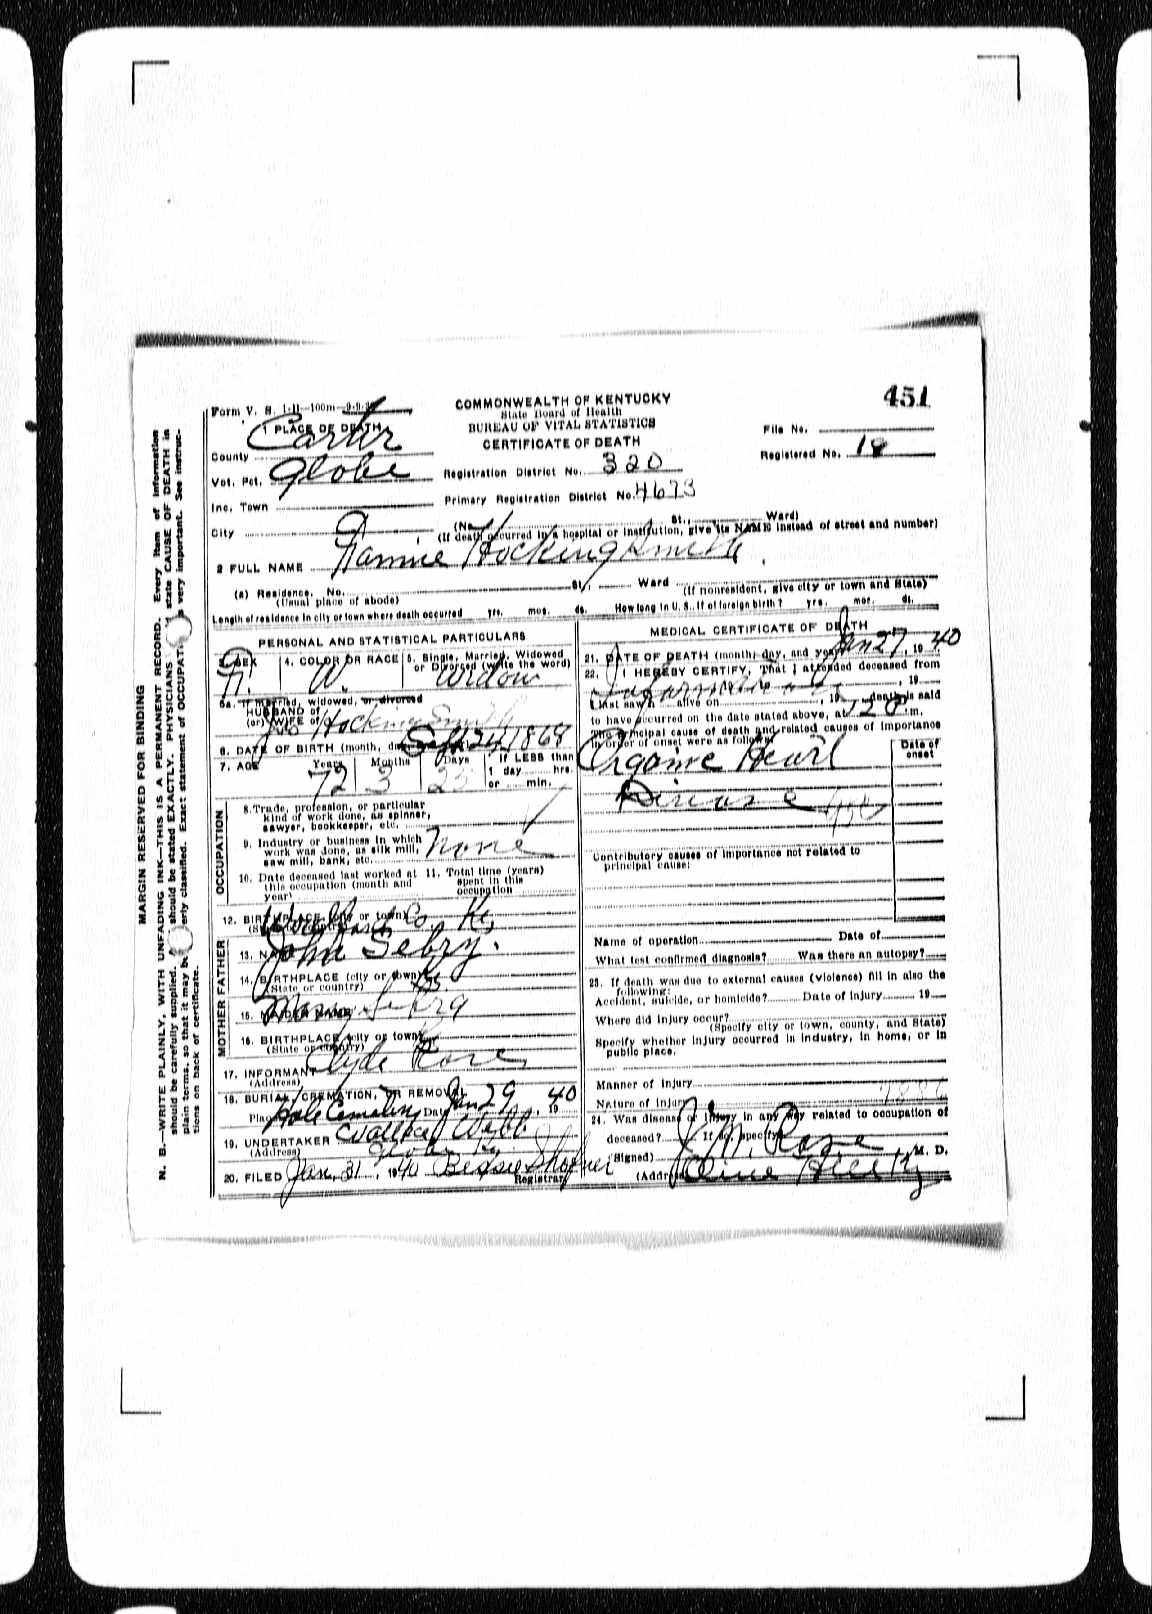 451
Form V. S. 1-D-100m-9-9-
COMMONWEALTH OF KENTUCKY
State Board of Health
BUREAU OF VITAL STATISTICS
CERTIFICATE OF DEATH
File No.
Registered No. 18
1 PLACE OF DEATH
County Carter
Vot. Pct. Globe
Inc. Town
City
Registration District No. 320
Primary Registration District No. 4673
(No. St., Ward)
(If death occurred in a hospital or institution, give its NAME instead of street and number)
2 FULL NAME Nannie Hocking Smith
(a) Residence. No. St., Ward (If nonresident, give city or town and State)
(Usual place of abode)
Length of residence in city or town where death occurred yrs. mos. ds. How long in U. S. if of foreign birth? yrs. mos. ds.
PERSONAL AND STATISTICAL PARTICULARS
3. SEX
4. COLOR OR RACE W.
5. Single, Married, Widowed
or Divorced (write the word)
Widow
5a. If married, widowed, or divorced
HUSBAND of
(or) WIFE of Hocking Smith
6. DATE OF BIRTH (month, day Sept 24, 1868
7. AGE Years 72 Months 3 Days
If LESS than
1 day hrs.
or min.
OCCUPATION
8. Trade, profession, or particular
kind of work done, as spinner,
sawyer, bookkeeper, etc.
9. Industry or business in which
work was done, as silk mill,
saw mill, bank, etc. None
10. Date deceased last worked at
this occupation (month and
year)
11. Total time (years)
spent in this
occupation
12. BIRTHPLACE (city or town) Co. Ky
FATHER
13. NAME John Sebry.
14. BIRTHPLACE (city or town)
(State or country) Ky.
MOTHER
15. MAIDEN NAME Mary
16. BIRTHPLACE (city or town)
(State or country)
17. INFORMANT Clyde Rose
(Address)
18. BURIAL, CREMATION, OR REMOVAL
Place Cemetery Date Jan 29, 19 40
19. UNDERTAKER Wallace Webb
(Address) Globe Ky
20. FILED Jan. 31, 1940 Bessie Shofner
Registrar
MEDICAL CERTIFICATE OF DEATH
21. DATE OF DEATH (month, day, and year) Jan 27, 19 40
22. I HEREBY CERTIFY, That I attended deceased from
, 19
I last saw h alive on , 19 death is said
to have occurred on the date stated above, at m.
The principal cause of death and related causes of importance
in order of onset were as follows:
Date of
onset
Organic Heart
Disease
Contributory causes of importance not related to
principal cause:
Name of operation Date of
What test confirmed diagnosis? Was there an autopsy?
23. If death was due to external causes (violence) fill in also the
following:
Accident, suicide, or homicide? Date of injury 19
Where did injury occur?
(Specify city or town, county, and State)
Specify whether injury occurred in industry, in home, or in
public place.
Manner of injury
Nature of injury
24. Was disease or injury in any way related to occupation of
deceased? If so, specify
(Signed) J. M. Rose, M. D.
(Address) Olive Hill Ky
MARGIN RESERVED FOR BINDING
N. B.—WRITE PLAINLY, WITH UNFADING INK—THIS IS A PERMANENT RECORD. Every item of information
should be carefully supplied. should be stated EXACTLY. PHYSICIANS state CAUSE OF DEATH in
plain terms, so that it may be erly classified. Exact statement of OCCUPAT very important. See instruc-
tions on back of certificate.